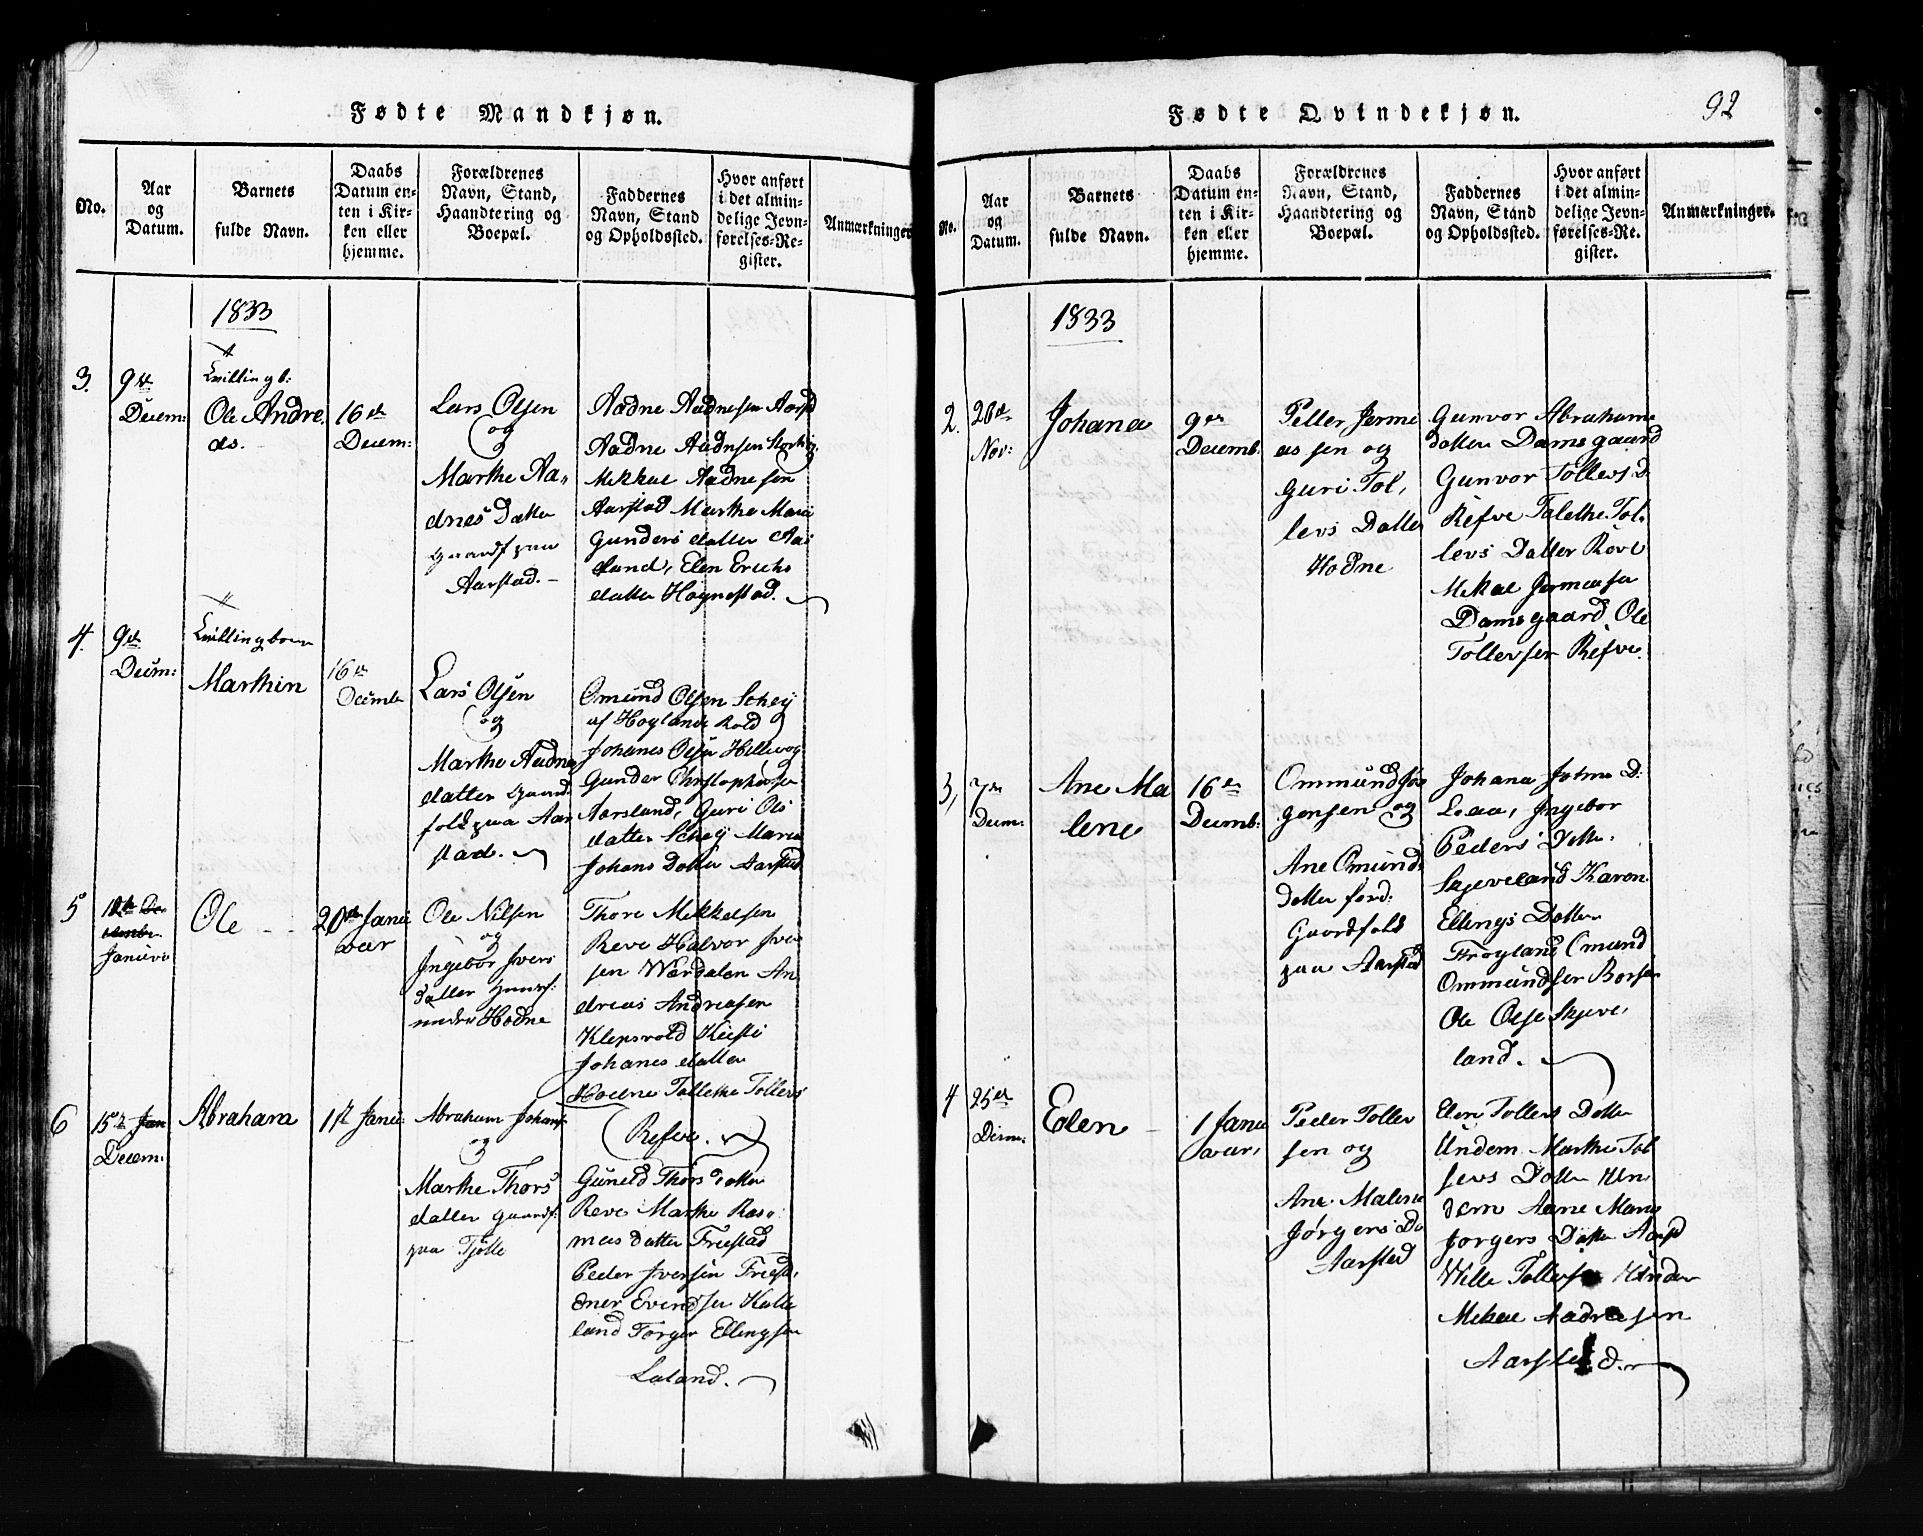 Fødte Mandkjøn.
No.
Aar
og
Datum.
Barnets
fulde Navn.
Daabs
Datum en-
ten i Kir-
ken eller
hjemme.
Forældrenes
Navn, Stand,
Haandtering og
Boepæl.
Faddernes
Navn, Stand
og Opholdssted.
Hvor anført
i det almin-
delige Jevn-
førelses-Re-
gister.
Anmærkninger
1833
3.
9de
Decem:
Tvillingb:
Ole Andre
as.
16de
Decem:
Lars Olsen
og
Marthe Aa„
dnes Datter
Gaardf paa
Aarstad. –
Aadne Aadnesen Aarsd
Aadne Aadnesen
Mikkal Aadnesen
Aarstad Marthe Mari
Gunders datter Aas
land, Elen Erichs
datter Hognestad.
4.
9de
Decem:
Tvillingbarn
Marthin
16de
Decemb
Lars Olsen
og
Marthe Aadne
datter Gaard
folk paa Aar
stad.
Omund Olsen Schey
af Hoylands
Johanes Olsen Hellevog
Gunder Christophersen
Aarsland, Guri Ols
datter Schey Maria
Johans Datter Aarstad
5
12te De
cembr.
Januar
Ole
20de Janu
var
Ole Nilsen
og
Ingebor Ivers
datter
under Hodne
Thore Mikkelsen
Reve Halvor Iver
sen Wardalen An
dreas Andreasen
Klepsvold Kirsti
Johanes datter
Hodne Tallethe Tollevs
Refve.
6
15de Jan
Decem:
Abraham
1te Janu:
Abraham Johans
og
Marthe Thors
datter Gaardf:
paa Tjøtte
Guneld Thors datter
Reve Marthe Ras
mus datter Friestad
Peder Iversen Friestd,
Ener Evendsen Kalle
land Torger Ellingsen
Laland.
Fødte Qvindekjøn.
92
No.
Aar
og
Datum.
Barnets
fulde Navn.
Daabs
Datum en-
ten i Kir-
ken eller
hjemme.
Forældrenes
Navn, Stand,
Haandtering og
Boepæl.
Faddernes
Navn, Stand
og Opholdssted.
Hvor anført
i det almin-
delige Jevn-
førelses-Re-
gister.
Anmærkninger.
1833
2.
20de
Nov:
Johana
9de
Decemb.
Peller Jerme
as sen og
Guri Tol,
levs Datter
Hodne
Gunvor Abrahams
datter Damsgaard
Gunvor Tollevs D
Refve Talethe Tol„
levs Datter Røve
Mikal Jermeasen
Damsgaard, Ole
Tollevsen Refve.
3,
7de
Decm:
Ane Ma
lene
16de
Decemb:
Ommund Jør
gensen og
Ane Omund
datter
Gaardfolk
paa Aarstad
Johana D:
Leaa, Ingebor
Peders Datter
Skjeveland Karen
Ellings Datter
Frøyland Omund
Ommundsen
Ole Olsen Skjeve,
land.
4
25de
Decm:
Elen
1 Janu
var,
Peder Tollev
sen og
Ane Malene
Jørgens Da
Aarstad
Elen Tollevs Datter
Undem Marthe Tol
levs Datter Un
dem Aane Maria
Jorgers Datter Aarsd
Wille Tollefsen Under
Mikal Aadnesen
Aarstad.